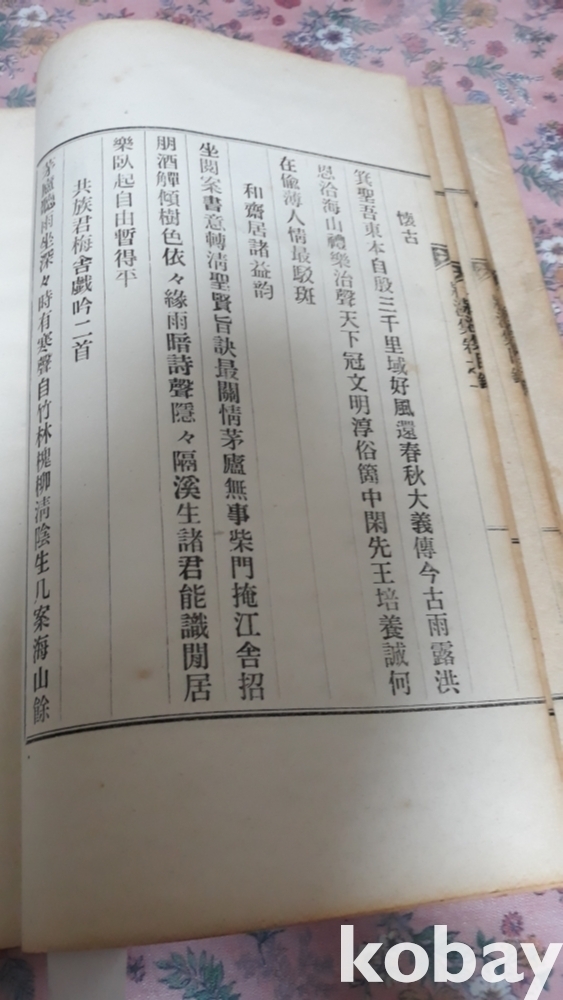 懷古
箕聖吾東本自殷三千里域好風還春秋大義傳今古雨露洪
恩洽海山禮樂治聲天下冠文明淳俗箇中閑先王培養誠何
在偸薄人情最駁斑
和齋居諸益韵
坐閱案書意轉淸聖賢旨訣最關情茅廬無事柴門掩江舍招
朋酒觶傾樹色依々緣雨暗詩聲隱々隔溪生諸君能識閒居
樂臥起自由暫得平
共族君梅舍戱吟二首
茅廬臨雨坐深々時有寒聲自竹林槐柳淸陰生几案海山餘
kobay